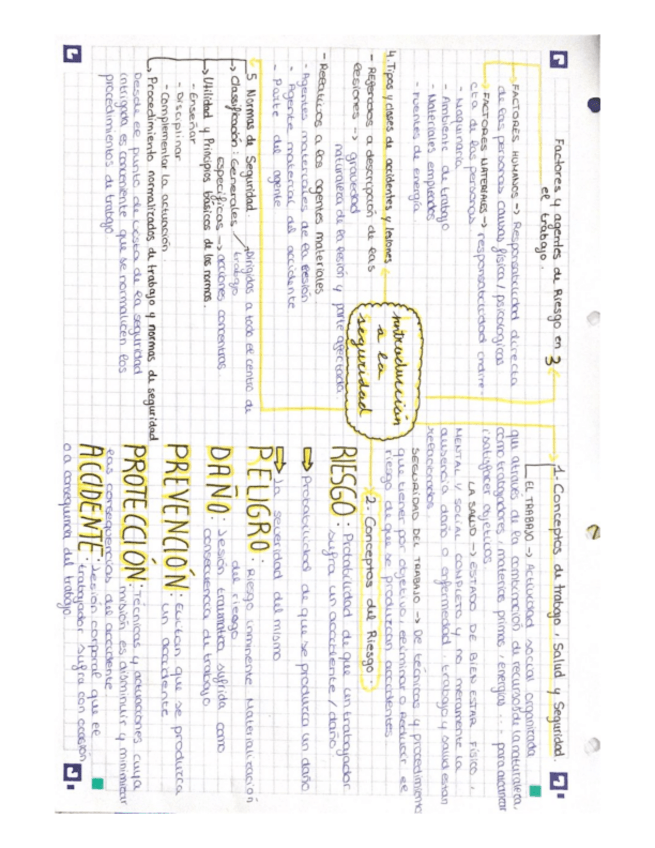 Introducción
a la
seguridad
1. Conceptos de trabajo, Salud y Seguridad.
EL TRABAJO -> Actividad social organizada
que através de la combinación de recursos de la naturaleza,
como trabajadores, materias primas, energías ... para alcanzar
/satisfacer objetivos.
LA SALUD -> ESTADO DE BIEN ESTAR FÍSICO,
MENTAL Y SOCIAL COMPLETO y no meramente la
ausencia daño o enfermedad, trabajo y salud están
relacionados.
SEGURIDAD DEL TRABAJO -> De técnicas y procedimientos
que tienen por objetivo, eliminar o Reducir el
riesgo de que se produzcan accidentes.
2. Conceptos del Riesgo.
RIESGO: Probabilidad de que un trabajador
sufra un accidente / daño.
-> Probabilidad de que se produzca un daño
-> La severidad del mismo
PELIGRO: Riesgo inminente Materialización
del riesgo
DAÑO: Lesión traumática sufrida como
consecuencia de trabajo
PREVENCIÓN: Evitan que se produzca
un accidente
PROTECCIÓN: Técnicas y actuaciones cuya
misión es disminuir y minimizar
las consecuencias del accidente
ACCIDENTE: Lesión corporal que el
trabajador sufra con ocasión
o a consecuencia del trabajo
Factores y agentes de Riesgo en 3
el trabajo.
-> FACTORES HUMANOS -> Responsabilidad directa
de las personas causas física / psicológicas
-> FACTORES MATERIALES -> responsabilidad indire-
cta de las personas
- Maquinaria
- Ambiente de trabajo
- Materiales empleados
- Fuentes de energía
4. Tipos y clases de accidentes y lesiones
- Referidos a descripción de las
lesiones -> gravedad
naturaleza de la lesión y parte afectada
- Relativos a los agentes materiales
- Agentes materiales de la lesión
- Agente material del accidente
- Parte del agente
5 Normas de Seguridad
-> Clasificación: Generales
Dirigidas a todo el centro de
trabajo
específicas -> acciones concretas
-> Utilidad y Principios básicos de las normas.
- Enseñar
- Disciplinar
- Complementar la actuación
-> Procedimiento normalizados de trabajo y normas de seguridad
Desde el punto de vista de la seguridad
intrigada es conveniente que se normalicen los
procedimientos de trabajo